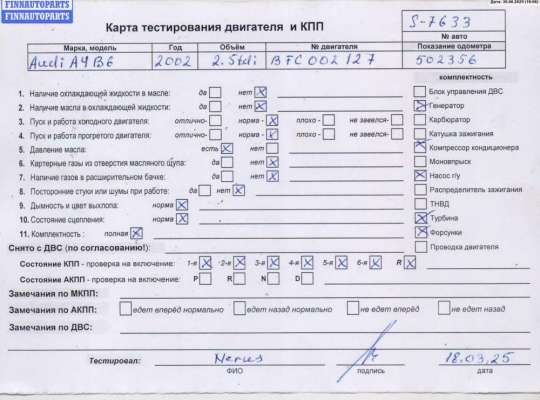 FINNAUTOPARTS
FINNAUTOPARTS
Карта тестирования двигателя и КПП
S-7633
№ авто
Марка, модель Год Объём № двигателя Показание одометра
Audi A4B6 2002 2.5tdi BFC002127 502356
комплектность
1. Наличие охлаждающей жидкости в масле: да нет
2. Наличие масла в охлаждающей жидкости: да нет
3. Пуск и работа холодного двигателя: отлично- норма - плохо - не завелся-
4. Пуск и работа прогретого двигателя: отлично- норма - плохо - не завелся-
5. Давление масла: есть нет
6. Картерные газы из отверстия масляного щупа: да нет
7. Наличие газов в расширительном бачке: да нет
8. Посторонние стуки или шумы при работе: да нет
9. Дымность и цвет выхлопа: норма
10. Состояние сцепления: норма
11. Комплектность : полная
Блок управления ДВС
Генератор
Карбюратор
Катушка зажигания
Компрессор кондиционера
Моновпрыск
Насос г/у
Распределитель зажигания
ТНВД
Турбина
Форсунки
Проводка двигателя
Снято с ДВС (по согласованию!):
Состояние КПП - проверка на включение: 1-я 2-я 3-я 4-я 5-я 6-я R
Состояние АКПП - проверка на включение: P R N D
Замечания по МКПП:
Замечания по АКПП: едет вперёд нормально едет назад нормально не едет вперёд не едет назад
Замечания по ДВС:
Тестировал: Nerius 18.03.25
ФИО подпись дата